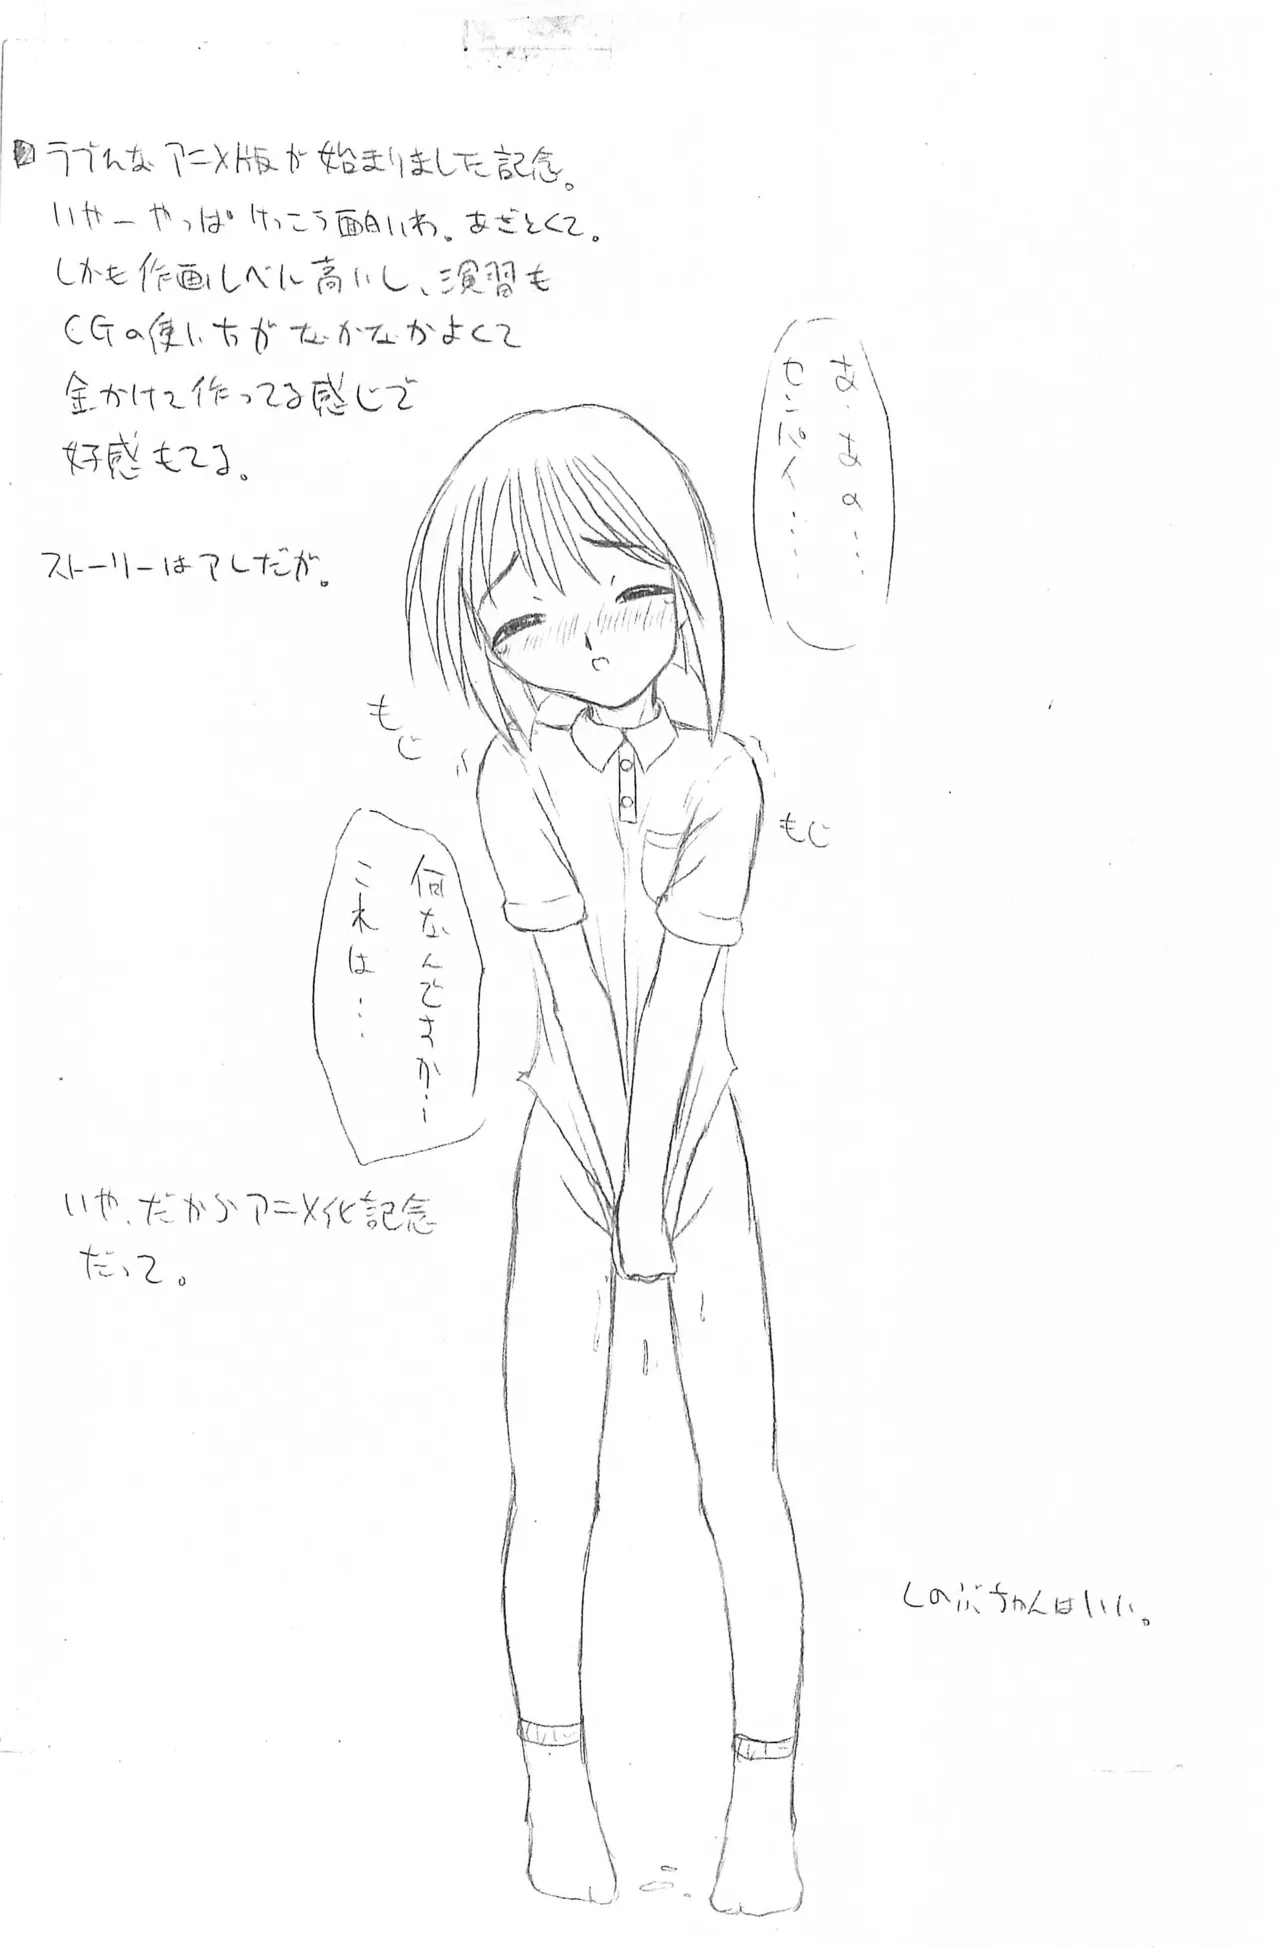 ラブひな アニメ版が始まりました記念。
いやーやっぱけっこう面白いわ。あざとくて。
しかも作画レベル高いし、演習も
CGの使い方がなかなかよくて
金かけて作ってる感じで
好感もてる。
ストーリーはアレだが。
あ、あの…
センパイ……
もじ
もじ
何なんですか…
これは…
いや、だからアニメ化記念
だって。
しのぶちゃんはいい。